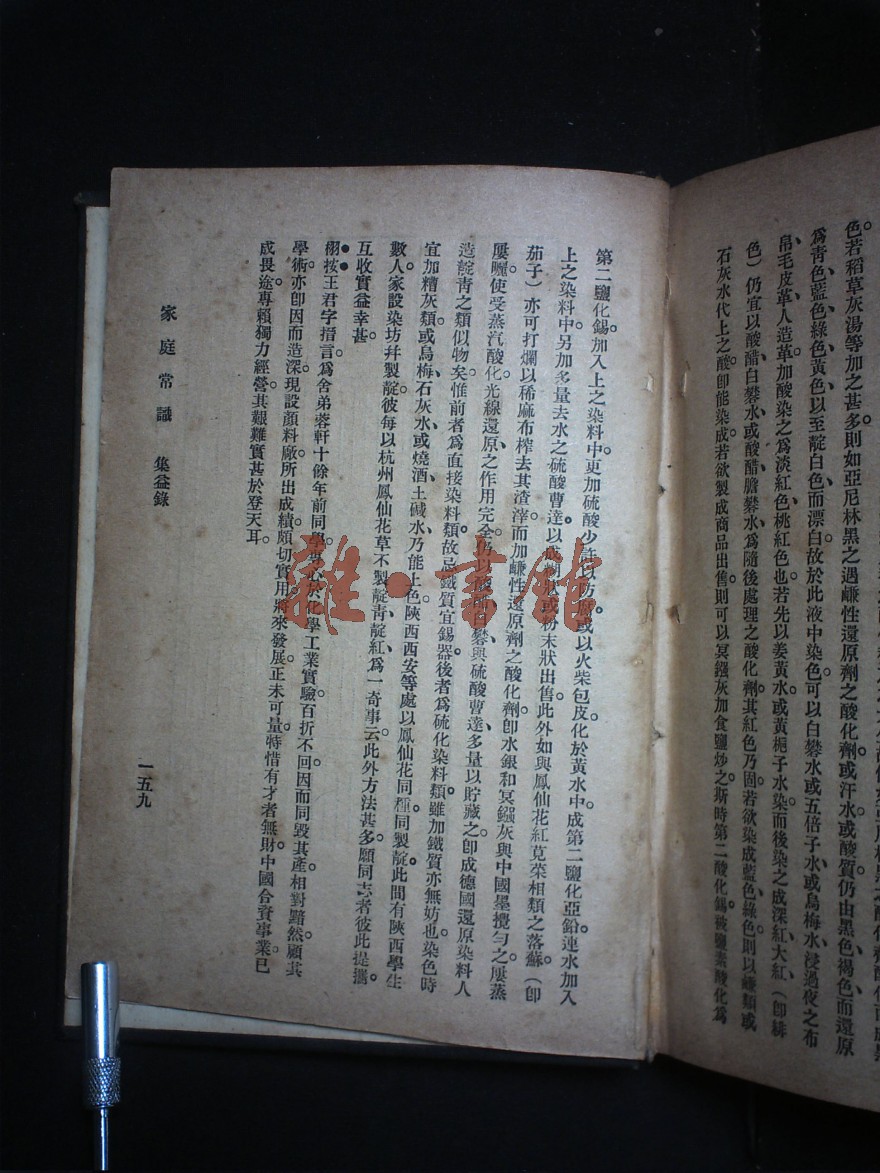 色。若稻草灰湯等加之甚多則如亞尼林黑之遇鹻性還原劑之酸化劑或汗水或酸質仍由黑色褐色而還原
爲青色藍色綠色黃色以至靛白色而漂白故於此液中染色可以白礬水或五倍子水或烏梅水浸過夜之布
帛毛皮革人造革加酸染之爲淡紅色桃紅色也若先以姜黃水或黃梔子水染而後染之成深紅大紅(卽緋
色)仍宜以酸醋白礬水或酸醋膽礬水爲隨後處理之酸化劑其紅色乃固若欲染成藍色綠色則以鹻類或
石灰水代上之酸卽能染成若欲製成商品出售則可以冥鏹灰加食鹽炒之斯時第二酸化錫被鹽素酸化爲
第二鹽化錫加入上之染料中更加硫酸少許以防腐或以火柴包皮化於黃水中成第二鹽化亞鉛連水加入
上之染料中另加多量去水之硫酸曹達以成糊狀或粉末狀出售此外如與鳳仙花紅莧菜相類之落蘇(卽
茄子)亦可打爛以稀麻布榨去其渣滓而加鹻性還原劑之酸化劑卽水銀和冥鏹灰與中國墨攪勻之屢蒸
屢曬使受蒸汽酸化光線還原之作用完全仍以酸醋白礬與硫酸曹達多量以貯藏之卽成德國還原染料人
造靛青之類似物矣惟前者爲直接染料類故忌鐵質宜錫器後者爲硫化染料類雖加鐵質亦無妨也染色時
宜加糟灰類或烏梅石灰水或燒酒土碱水乃能上色陝西西安等處以鳳仙花同種同製靛此間有陝西學生
數人家設染坊幷製靛彼每以杭州鳳仙花草不製靛青靛紅爲一奇事云此外方法甚多願同志者彼此提攜
互收實益幸甚。
栩按王君字指言爲舍弟蓉軒十餘年前同學專心於化學工業實驗百折不回因而同毀其產相對黯然顧其
學術亦卽因而造深現設顏料廠所出成績頗切實用將來發展正未可量特惜有才者無財中國合資事業已
成畏途專賴獨力經營其艱難實甚於登天耳。
家庭常識 集益錄
一五九
雜·書館